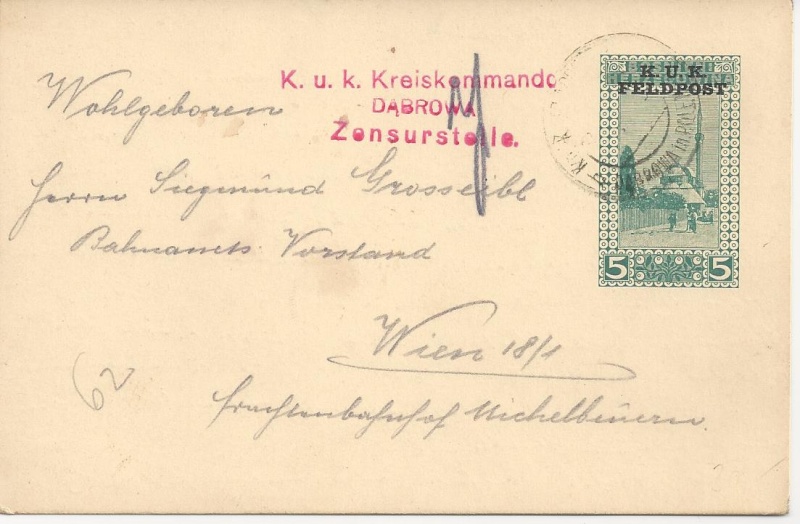 K. u. k. Kreiskommando
DĄBROWA
Zensurstelle.
K. U. K.
FELDPOST
5 5
Wohlgeboren
Herrn Siegmund Grosseibl
Bahnamts Vorstand
Wien 18/1
Frachtenbahnhof Michelbeuern
62